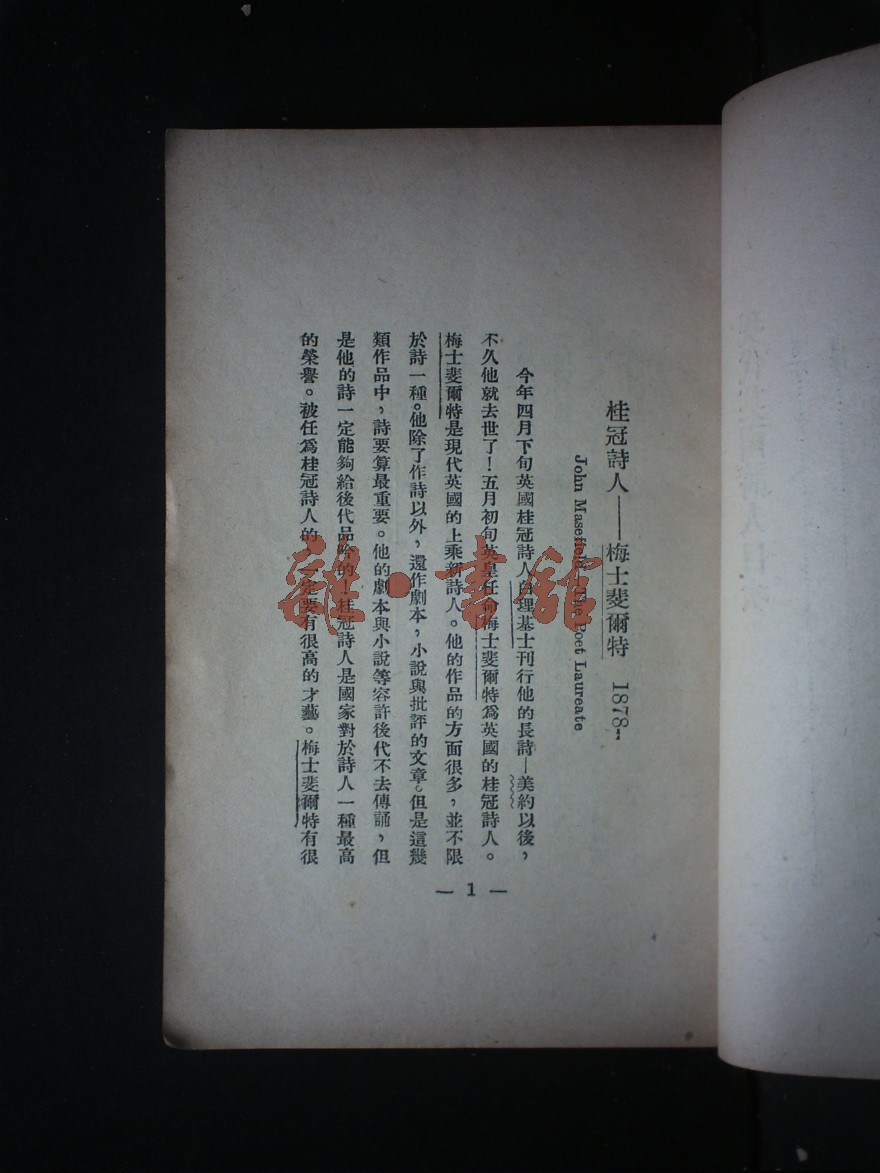 桂冠詩人——梅士斐爾特 1878-
John Masefield—The Poet Laureate
今年四月下旬英國桂冠詩人白理基士刊行他的長詩—美約以後，
不久他就去世了！五月初旬英皇任命梅士斐爾特爲英國的桂冠詩人。
梅士斐爾特是現代英國的上乘新詩人。他的作品的方面很多，並不限
於詩一種。他除了作詩以外，還作劇本，小說與批評的文章。但是這幾
類作品中，詩要算最重要。他的劇本與小說等容許後代不去傳誦，但
是他的詩一定能夠給後代品吟的！桂冠詩人是國家對於詩人一種最高
的榮譽。被任爲桂冠詩人的一定要有很高的才藝。梅士斐爾特有很
— 1 —
雜·書館